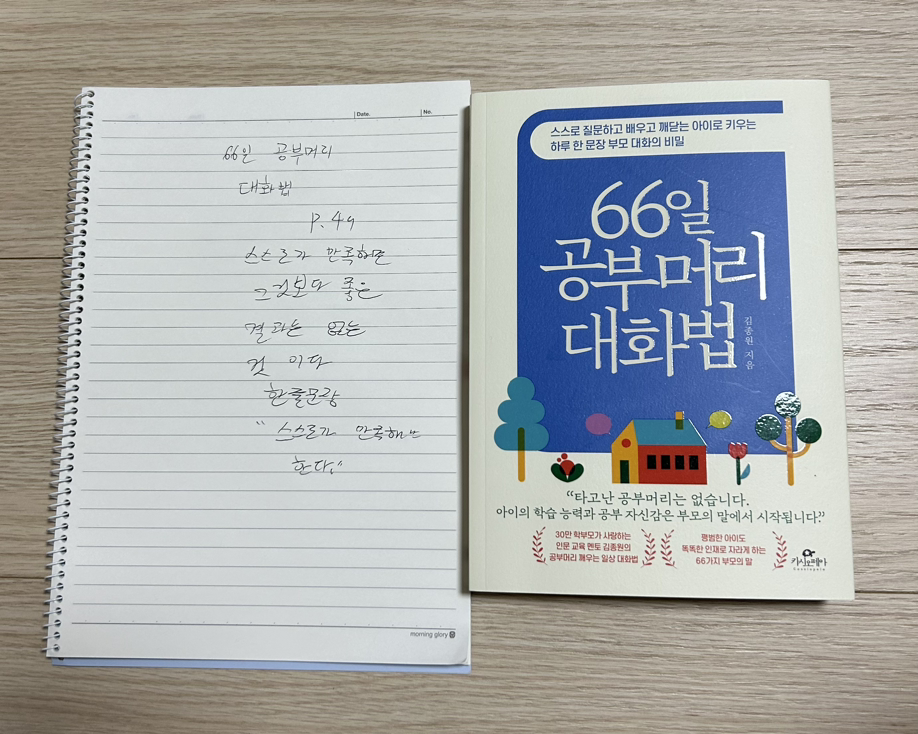 Date.
No.
66일 공부머리
대화법
P. 49
스스로가 만족하면
그것보다 좋은
결과는 없는
것 이다
한줄문장
" 스스로가 만족해야
한다."
morning glory
스스로 질문하고 배우고 깨닫는 아이로 키우는
하루 한 문장 부모 대화의 비밀
66일
공부머리
대화법
김종원 지음
“타고난 공부머리는 없습니다.
아이의 학습 능력과 공부 자신감은 부모의 말에서 시작됩니다.”
30만 학부모가 사랑하는
인문 교육 멘토 김종원의
공부머리 깨우는 일상 대화법
평범한 아이도
똑똑한 인재로 자라게 하는
66가지 부모의 말
카시오페아
Cassiopeia